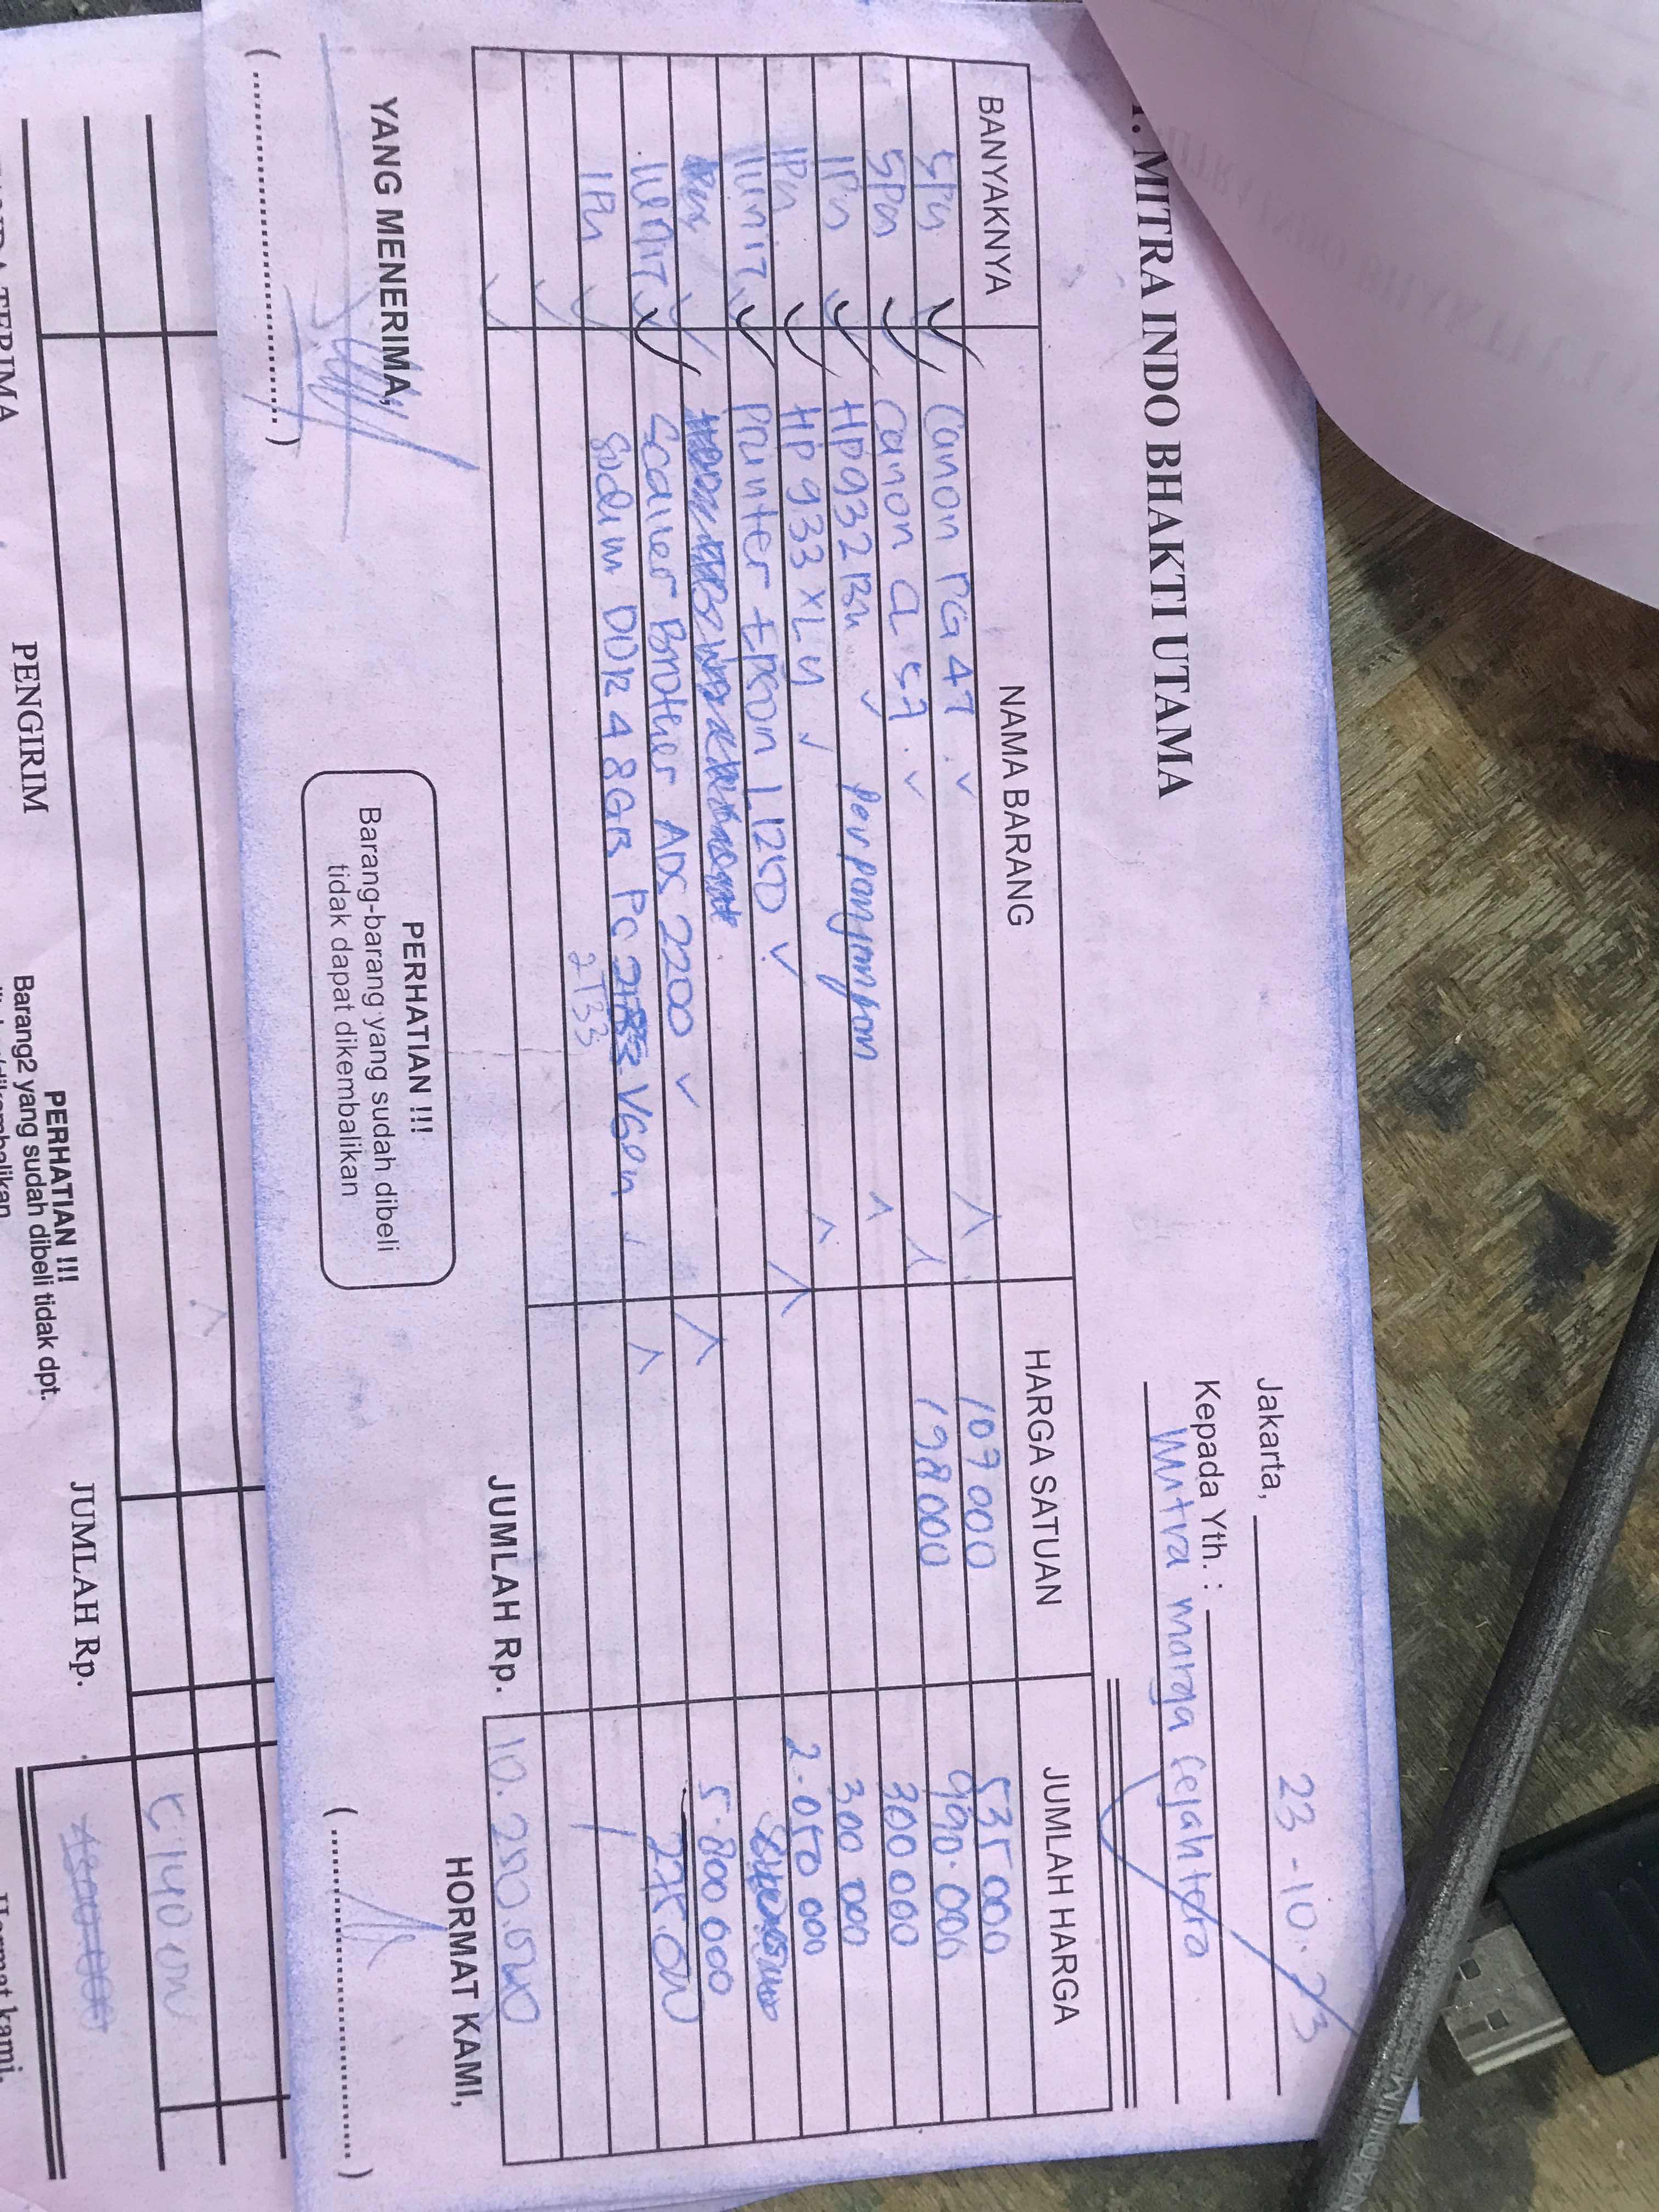 MITRA INDO BHAKTI UTAMA
Jakarta, 23-10-23
Kepada Yth. :
Mitra marga Sejahtera
BANYAKNYA NAMA BARANG HARGA SATUAN JUMLAH HARGA
5 Pcs Canon PG 47 107 000 535 000
5 Pcs Canon CL 57 198 000 990.000
1 Pcs HP 932 300 000
1 Pcs HP 933 XL 300 000
1 unit Printer Epson L1250 2.050 000
1 unit Scaner Brother ADS 2200 5.800 000
1 Pcs Sodim DDR 4 8GB PC Vgen 275.000
JUMLAH Rp. 10.250.000
YANG MENERIMA,
PERHATIAN !!!
Barang-barang yang sudah dibeli
tidak dapat dikembalikan
HORMAT KAMI,
(..................)
(..................)
PENGIRIM
PERHATIAN !!!
Barang2 yang sudah dibeli tidak dpt.
JUMLAH Rp.